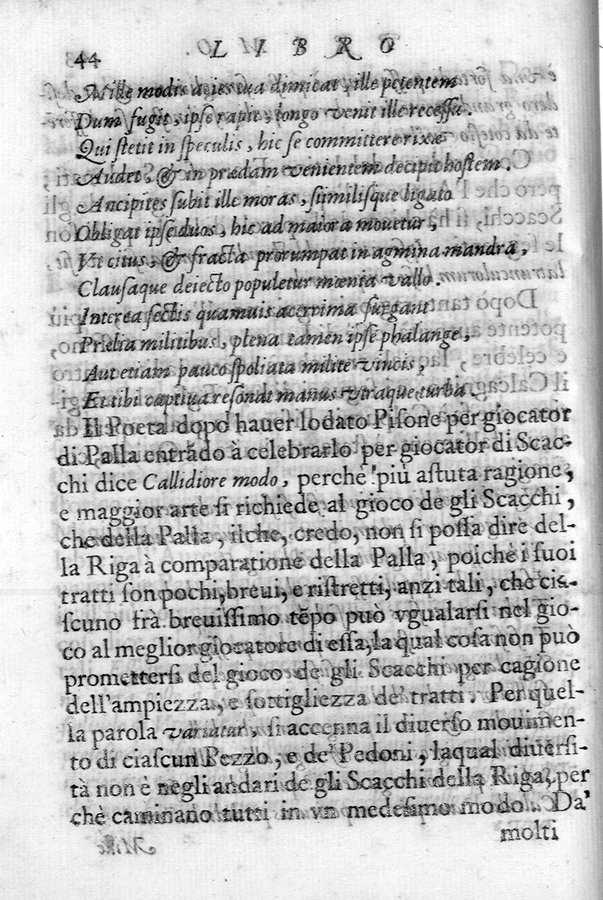 44 LIBRO
Mille modis acies tua dimicat, ille petentem
Dum fugit, ipse rapit, longo venit ille recessu.
Qui stetit in speculis, hic se committere rixæ
Audet, & in prædam venientem decipit hostem.
Ancipites subit ille moras, similisque ligato
Obligat ipse duos, hic ad maiora mouetur,
Vt citus, & fracta prorumpat in agmina mandra,
Clausaque deiecto populetur mœnia vallo.
Interea sectis quamuis acerrima surgant
Prælia militibus, plena tamen ipse phalange,
Aut etiam pauco spoliata milite vincis,
Et tibi captiua resonat manus vtraque turba.
Il Poeta dopo hauer lodato Pisone per giocator
di Palla entrādo à celebrarlo per giocator di Scac-
chi dice Callidiore modo, perche più astuta ragione,
e maggior arte si richiede al gioco de gli Scacchi,
che della Palla, ilche, credo, non si possa dire del-
la Riga à comparatione della Palla, poiche i suoi
tratti son pochi, breui, e ristretti, anzi tali, che cia-
scuno frà breuissimo tēpo può vgualarsi nel gio-
co al meglior giocatore di essa, la qual cosa non può
promettersi del gioco de gli Scacchi per cagione
dell'ampiezza, e sottigliezza de' tratti. Per quel-
la parola variatur, si accenna il diuerso mouimen-
to di ciascun Pezzo, e de' Pedoni, laqual diuersi-
tà non è negli andari de gli Scacchi della Riga, per
chè caminano tutti in vn medesimo modo. Da'
molti